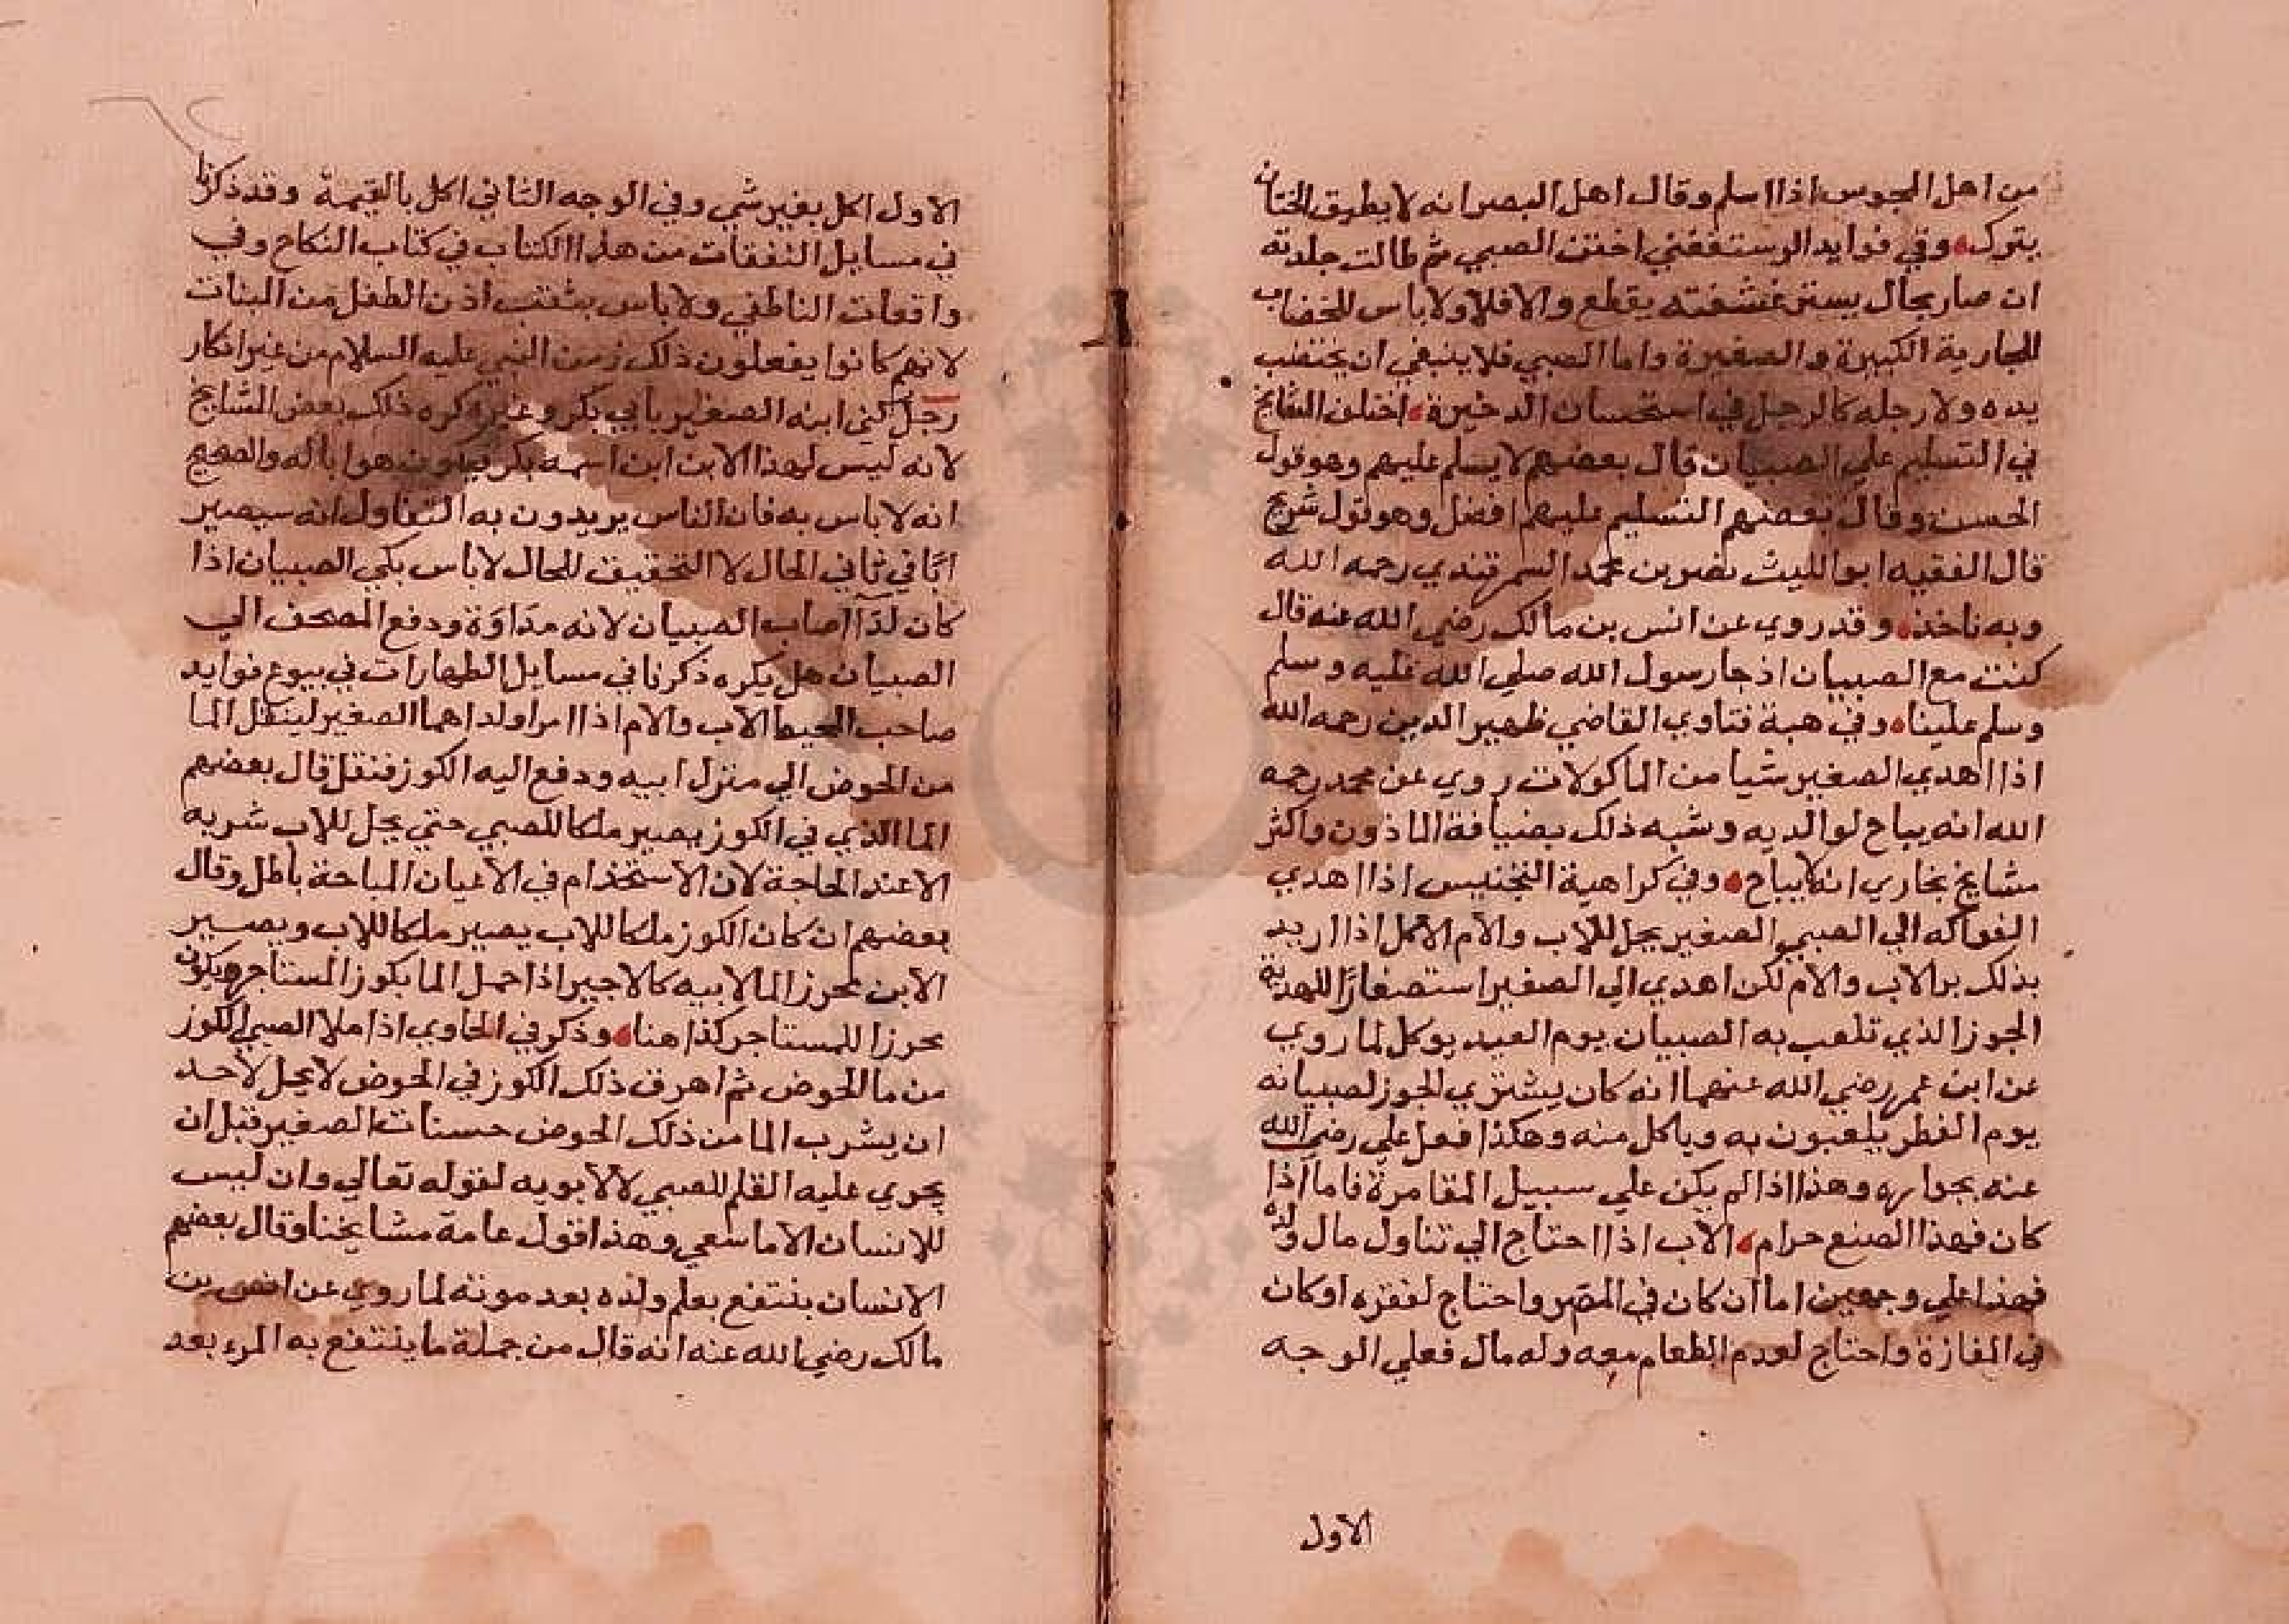 من اهل المجوس اذا اسلم وقال اهل البصر انه لا يطيق الختان
يترك وفي فوايد الرستغفني اختتن الصبي ثم طالت جلدته
ان صار بحال يستر غشفته يقطع والا فلا ولا باس للخضاب
للجارية الكبيرة والصغيرة واما الصبي فلا ينبغي ان يختضب
يده ولا رجله كالرجل في استحسان الدخيرة اختلف المشايخ
في التسليم علي الصبيان قال بعضهم لا يسلم عليهم وهو قول
الحسن وقال بعضهم التسليم عليهم افضل وهو قول شريح
قال الفقيه ابو الليث نصر بن محمد السمرقندي رحمه الله
وبه ناخذ وقد روي عن انس بن مالك رضي الله عنه قال
كنت مع الصبيان اذ جا رسول الله صلي الله عليه وسلم
وسلم علينا وفي هبة فتاوي القاضي ظهير الدين رحمه الله
اذا اهدي الصغير شيا من الماكولات روي عن محمد رحمه
الله انه يباح لوالديه وشبه ذلك بضيافة الماذون واكثر
مشايخ بخاري انه لا يباح وفي كراهية التجنيس اذا اهدي
الفواكه الي الصبي الصغير يحل للاب والام الاكل اذا اريد
بذلك بر الاب والام لكن اهدي الي الصغير استصغارًا للهدية
الجوز الذي تلعب به الصبيان يوم العيد يوكل لما روي
عن ابن عمر رضي الله عنهما انه كان يشتري الجوز لصبيانه
يوم الفطر يلعبون به وياكل منه وهكذا فعل علي رضي الله
عنه بجواره وهذا اذا لم يكن علي سبيل المقامرة فاما اذا
كان فهذا الصنع حرام الاب اذا احتاج الي تناول مال ولده
فهذا علي وجهين اما ان كان في المصر واحتاج لفقره او كان
في المفازة واحتاج لعدم الطعام معه وله مال فعلي الوجه
الاول
الاول اكل بغير شي وفي الوجه الثاني اكل بالقيمة وقد ذكرنا
في مسايل النفقات من هذا الكتاب في كتاب النكاح وفي
واقعات الناطفي ولا باس بثقب اذن الطفل من البنات
لانهم كانوا يفعلون ذلك زمن النبي عليه السلام من غير انكار
رجل كني ابنه الصغير بابي بكر وغيره كره ذلك بعض المشايخ
لانه ليس لهذا الابن ابن اسمه بكر ليكون هو ابا له والصحيح
انه لا باس به فان الناس يريدون به التفاول انه سيصير
ابًا في ثاني الحال لا التحقيق للحال لا باس بكي الصبيان اذا
كان لدآ اصاب الصبيان لانه مداوة ودفع المصحف الي
الصبيان هل يكره ذكرنا في مسايل الطهارات في بيوع فوايد
صاحب المحيط الاب والام اذا امرا ولداهما الصغير لينقل الما
من الحوض الي منزل ابيه ودفع اليه الكوز فنقل قال بعضهم
الما الذي في الكوز يصير ملكا للصبي حتي يحل للاب شربه
الا عند الحاجة لان الاستخدام في الاعيان المباحة باطل وقال
بعضهم ان كان الكوز ملكا للاب يصير ملكا للاب ويصير
الابن محرز الما لابيه كالاجير اذا حمل الما بكوز المستاجر يكون
محرزا للمستاجر كذا هنا وذكر في الحاوي اذا ملا الصبي الكوز
من ما الحوض ثم اهرق ذلك الكوز في الحوض لا يحل لاحد
ان يشرب الما من ذلك الحوض حسنات الصغير قبل ان
يجري عليه القلم للصبي لا لابويه لقوله تعالي وان ليس
للانسان الا ما سعي وهذا قول عامة مشايخنا وقال بعضهم
الانسان ينتفع بعلم ولده بعد موته لما روي عن انس بن
مالك رضي الله عنه انه قال من جملة ما ينتفع به المرء بعد